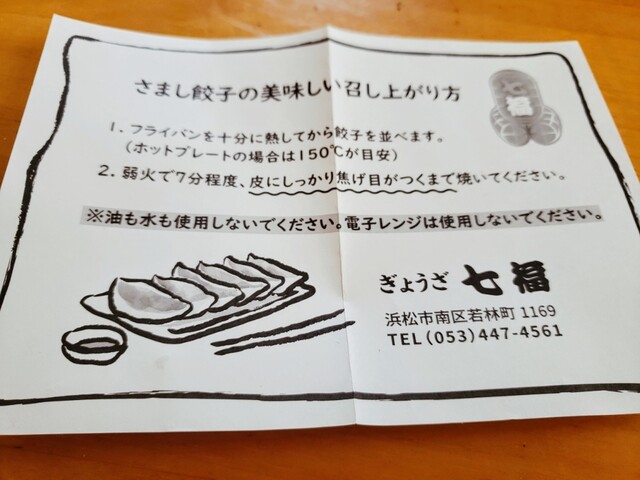 さまし餃子の美味しい召し上がり方
福
1. フライパンを十分に熱してから餃子を並べます。
(ホットプレートの場合は150℃が目安)
2. 弱火で7分程度、皮にしっかり焦げ目がつくまで焼いてください。
※油も水も使用しないでください。電子レンジは使用しないでください。
ぎょうざ 七福
浜松市南区若林町1169
TEL(053)447-4561